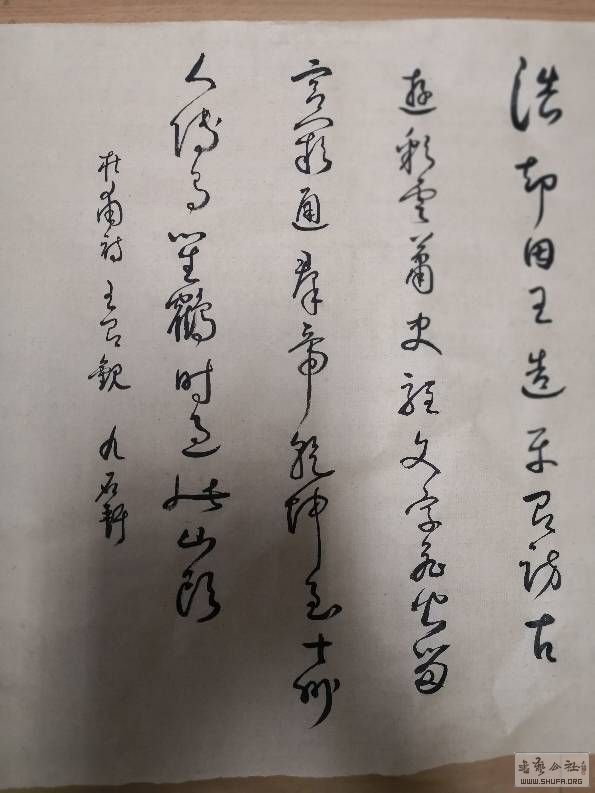 浩劫因王造平台訪古
遊彩雲蕭史駐文字魯恭留
宮闕通羣帝乾坤到十洲
人傳有笙鶴時過此山頭
杜甫詩 玉台觀 九石軒
书艺公社
WWW.SHUFA.ORG